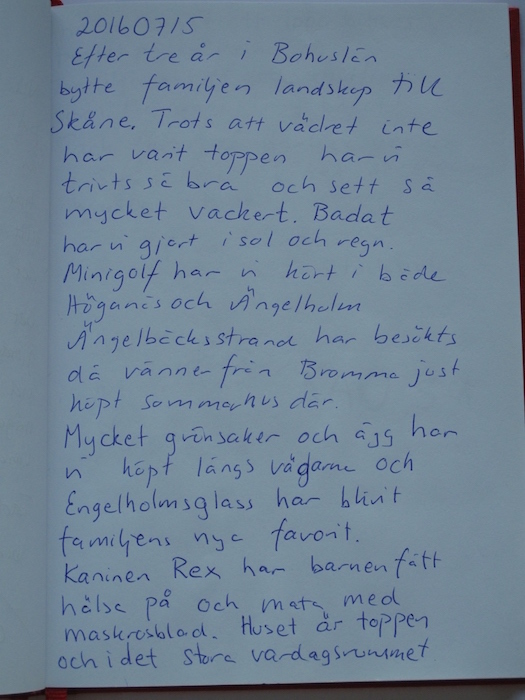 20160715
Efter tre år i Bohuslän
bytte familjen landskap till
Skåne. Trots att vädret inte
har varit toppen har vi
trivts så bra och sett så
mycket vackert. Badat
har vi gjort i sol och regn.
Minigolf har vi kört i både
Höganäs och Ängelholm
Ängelbäcksstrand har besökts
då vänner från Bromma just
köpt sommarhus där.
Mycket grönsaker och ägg har
vi köpt längs vägarna och
Engelholmsglass har blivit
familjens nya favorit.
Kaninen Rex har barnen fått
hälsa på och mata med
maskrosblad. Huset är toppen
och i det stora vardagsrummet